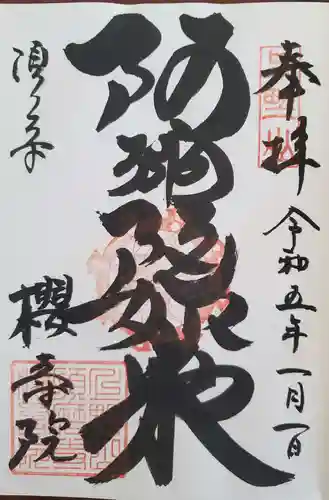 奉拝
令和五年一月一日
阿弥陀如来
須磨寺
櫻寿院